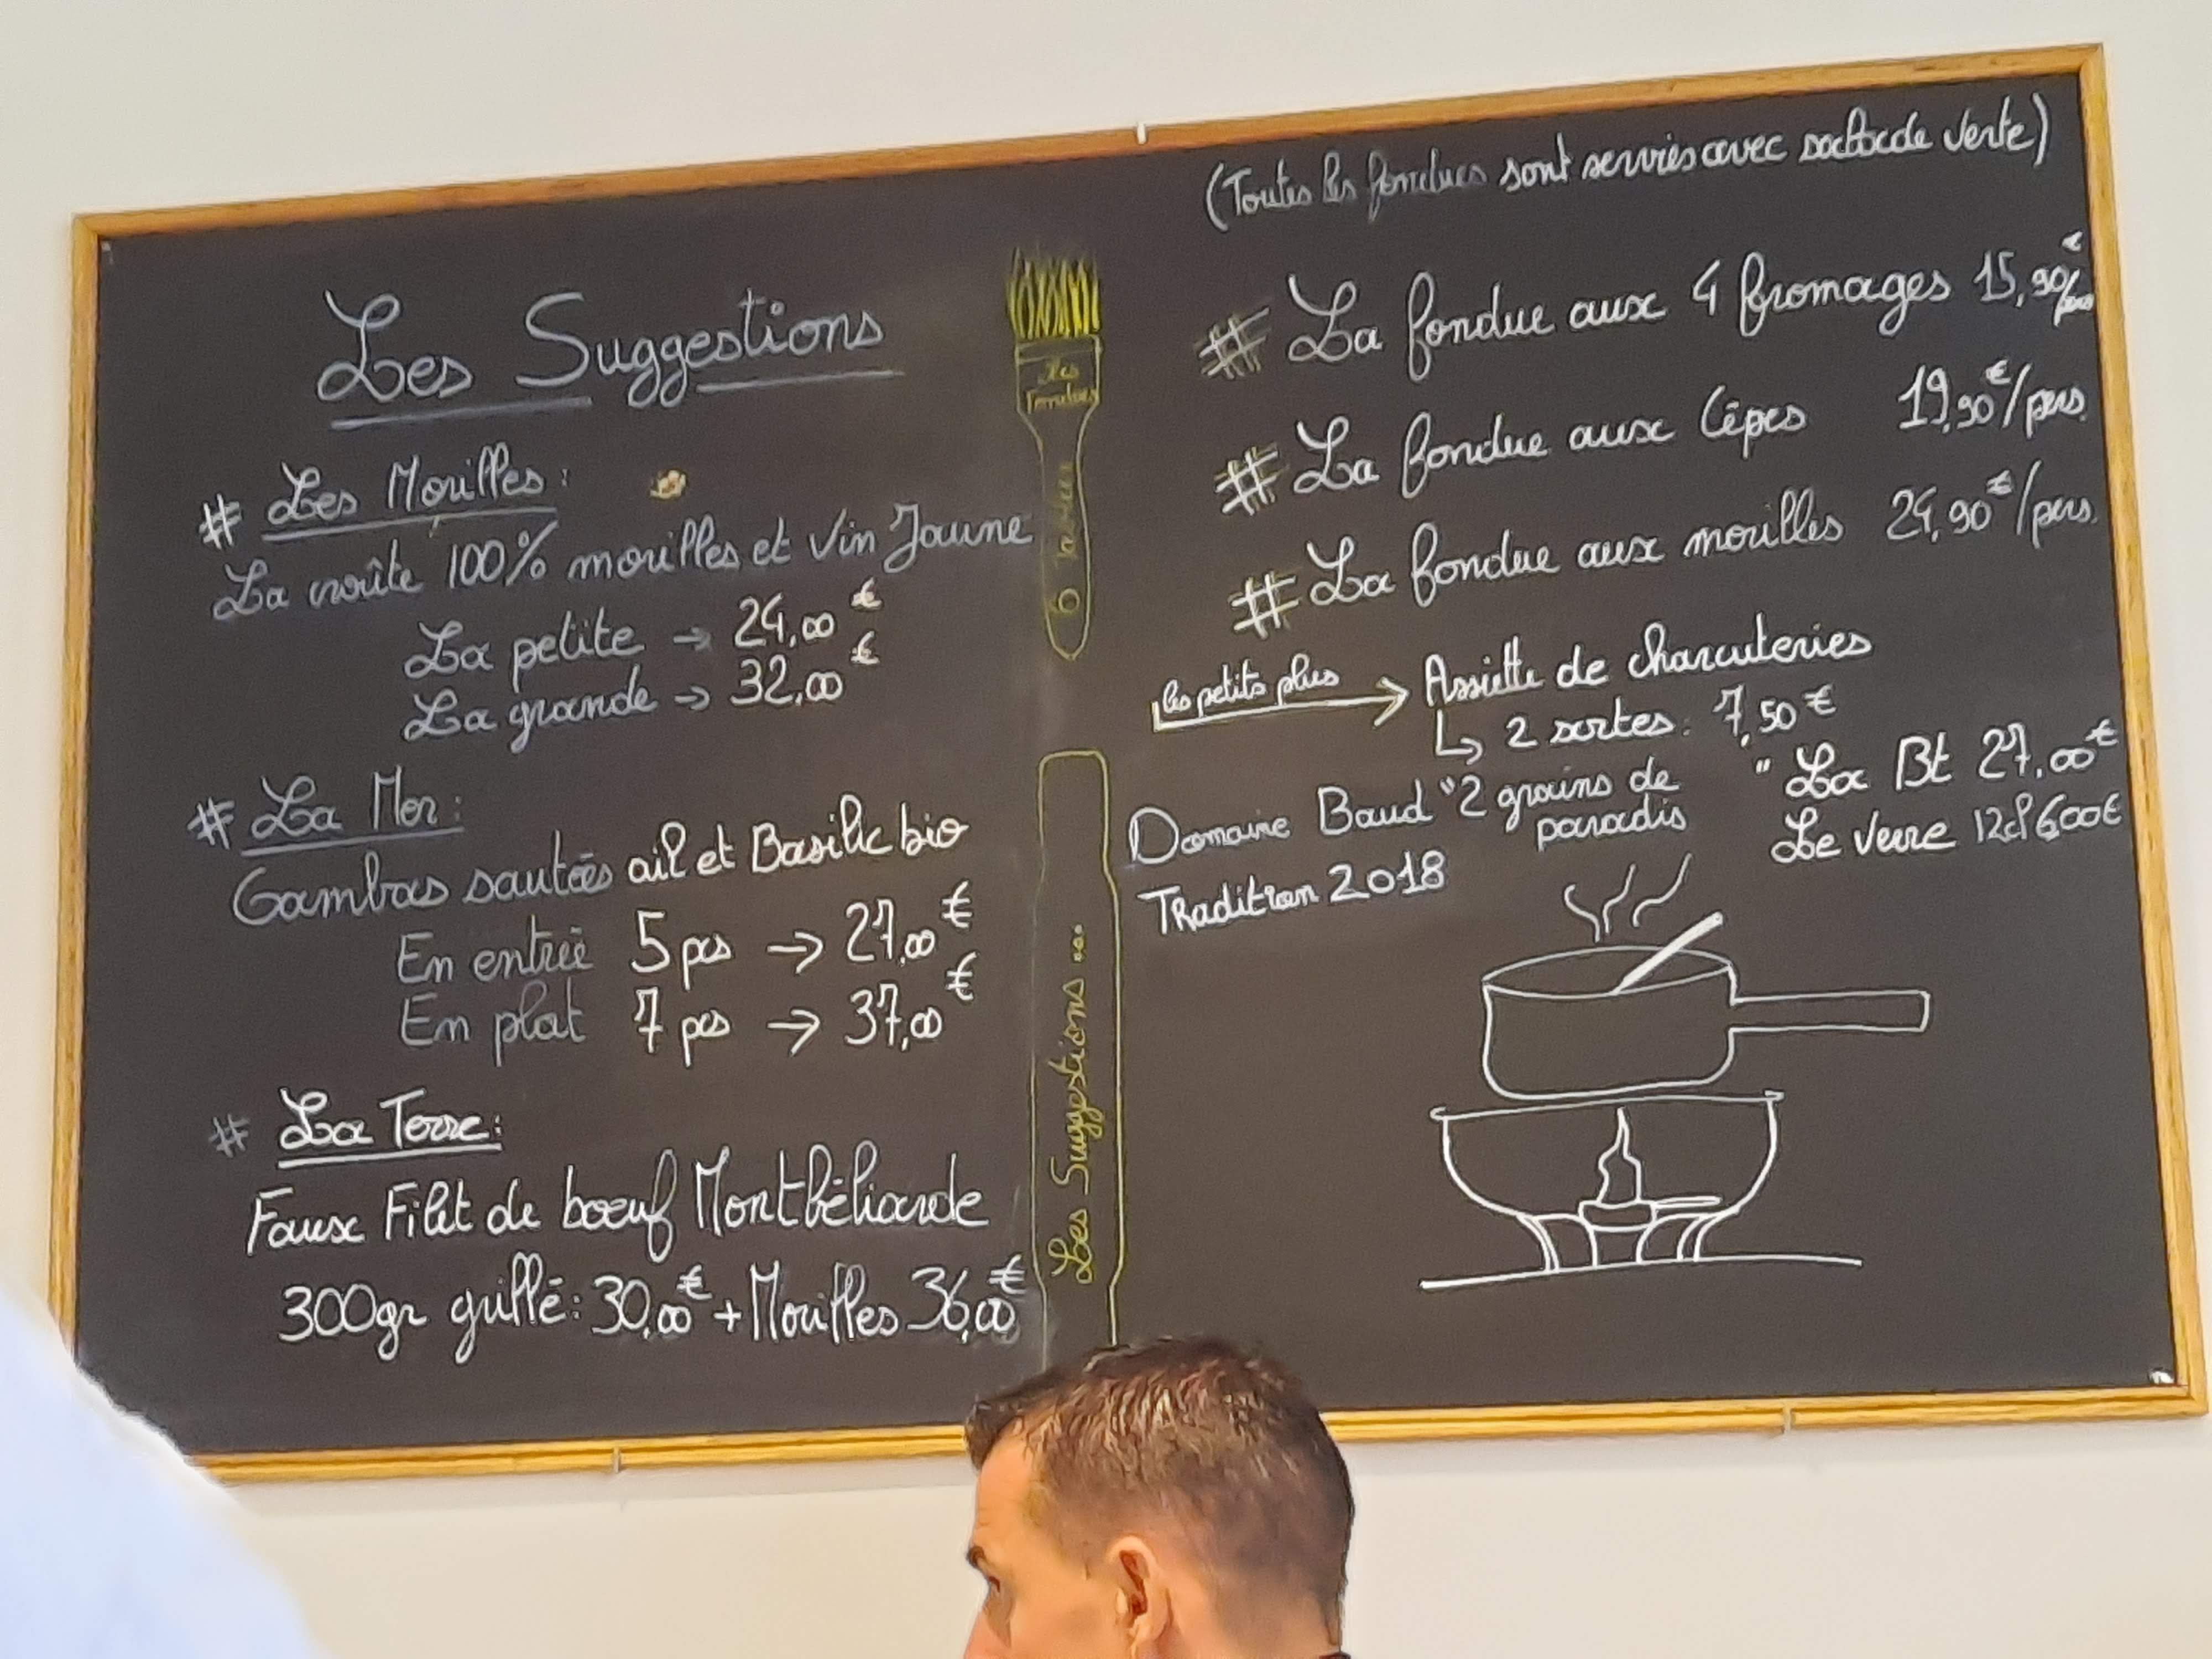 Les Suggestions
# Les Morilles :
La croûte 100% morilles et Vin Jaune
La petite → 24,00 €
La grande → 32,00 €
# La Mer :
Gambas sautées ail et Basilic bio
En entrée 5 pcs → 27,00 €
En plat 7 pcs → 37,00 €
# La Terre :
Faux Filet de boeuf Montbéliarde
300gr grillé : 30,00€ + Morilles 36,00€
Les
Fondues
6
Les Suggestions ...
(Toutes les fondues sont servies avec salade verte)
# La fondue aux 4 fromages 15,90€/pers
# La fondue aux Cêpes 19,90€/pers.
# La fondue aux morilles 24,90€/pers.
les petits plus → Assiette de charcuteries
↳ 2 sortes : 7,50 €
Domaine Baud "2 grains de paradis" La Bt 27,00€
Tradition 2018 Le verre 12cl 6,00€